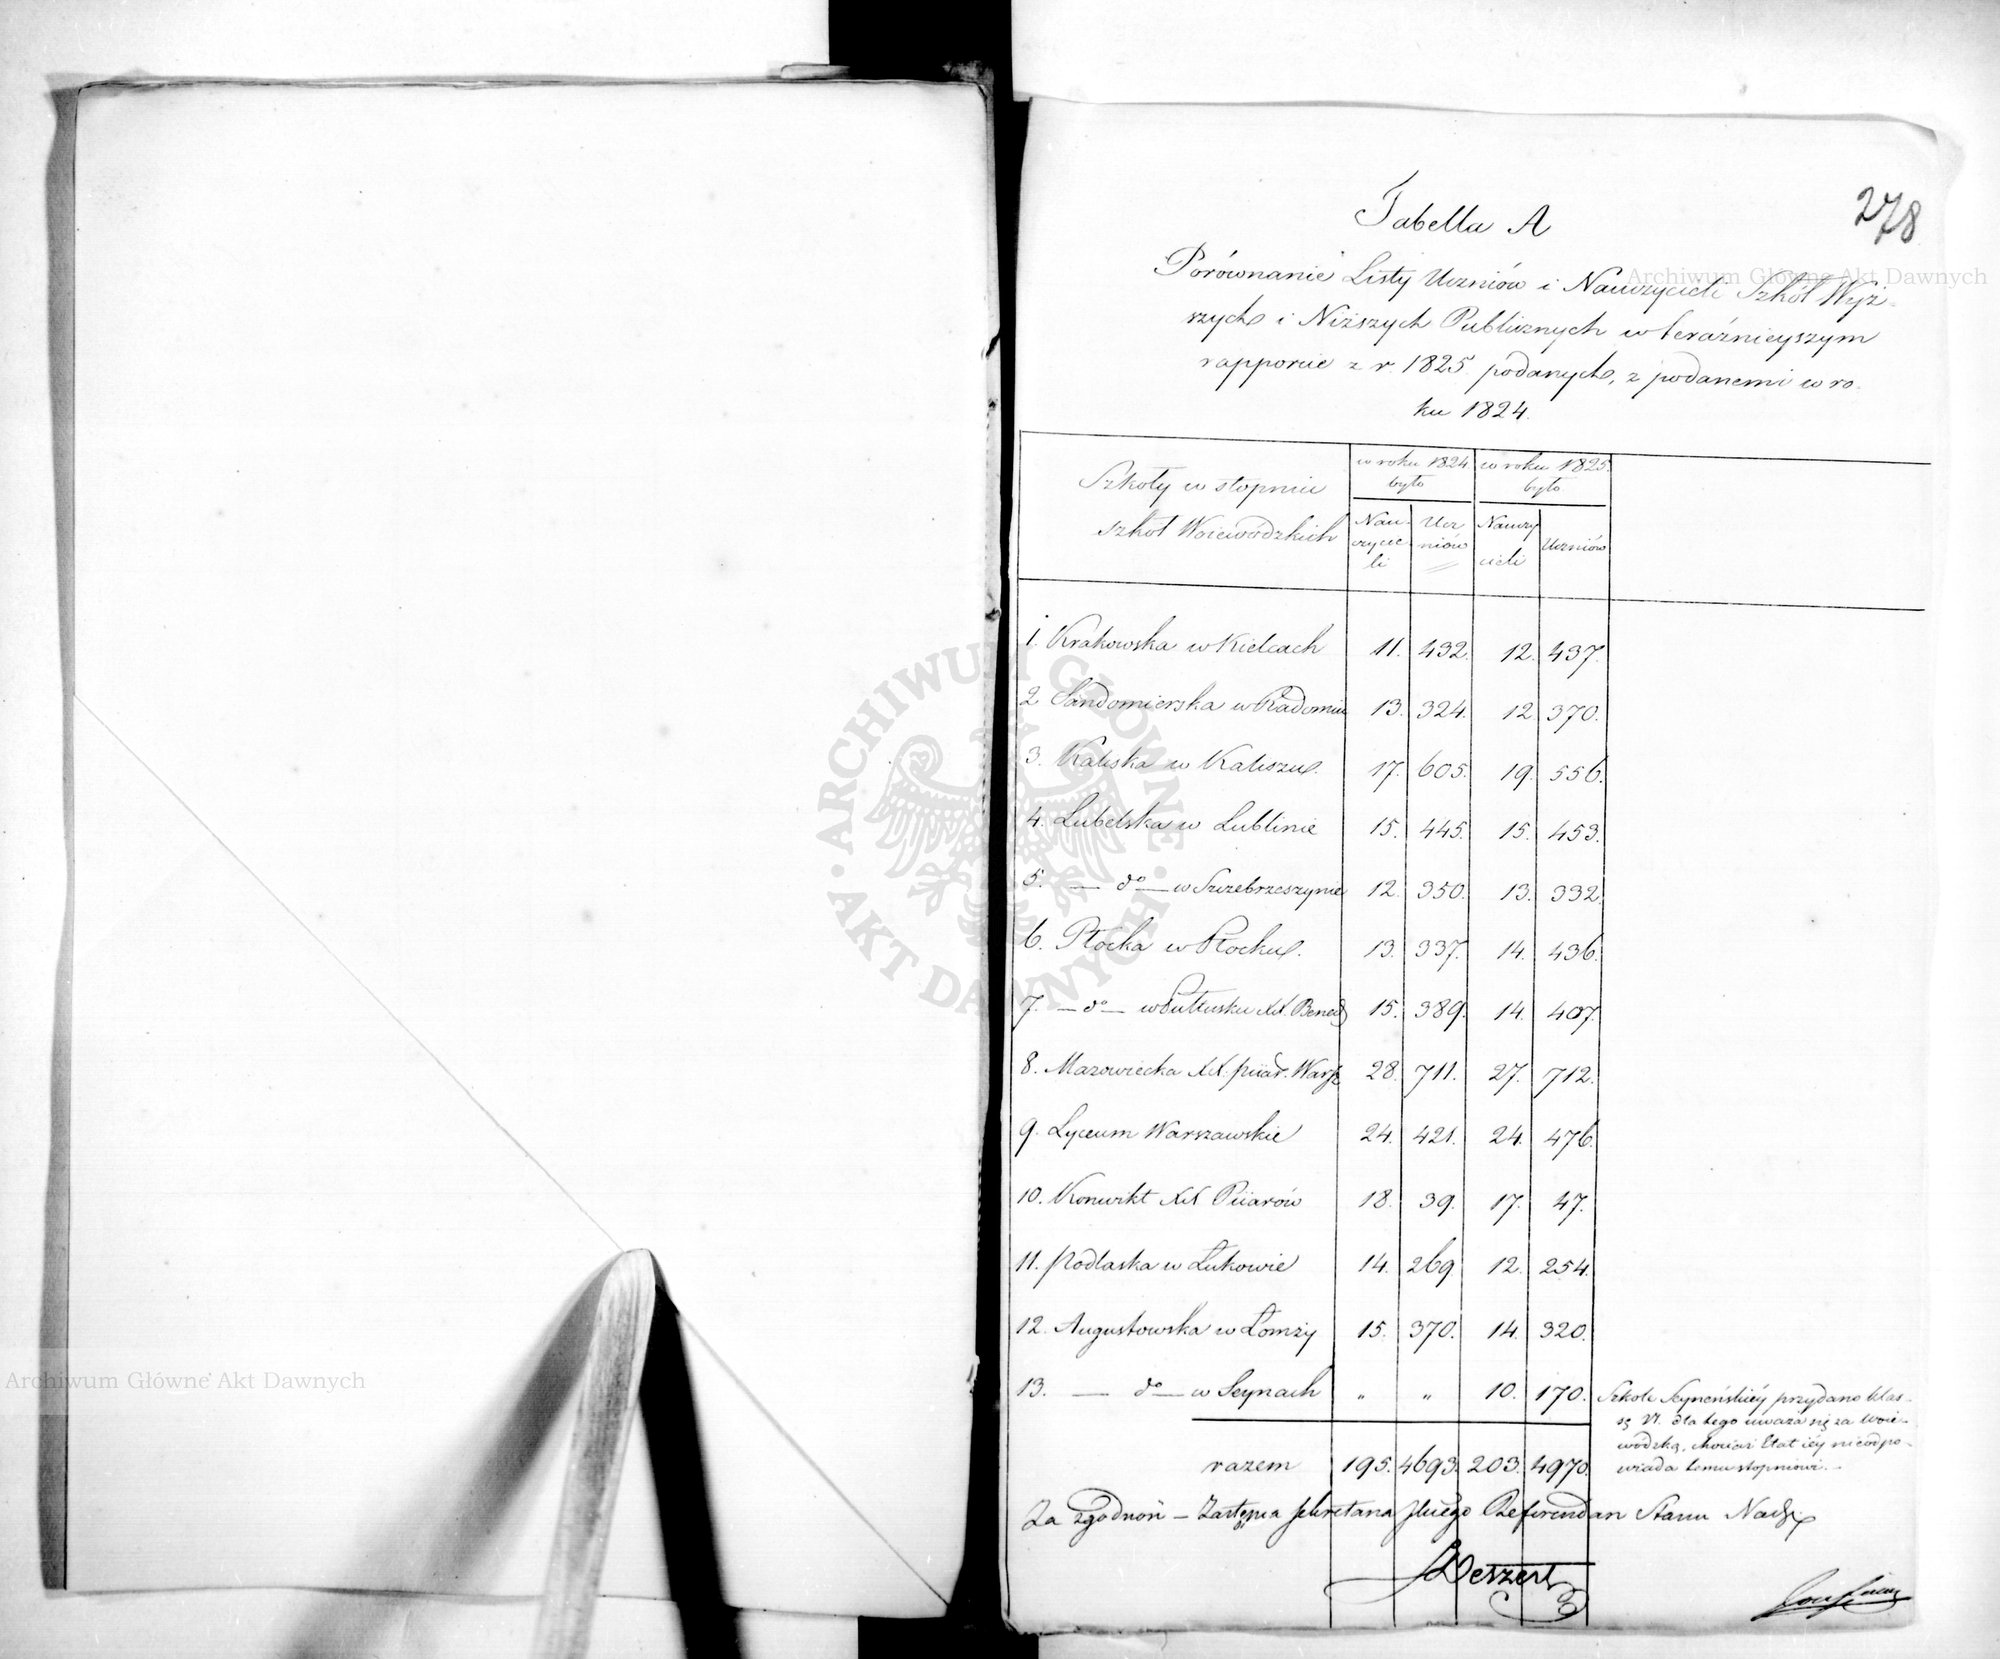 278
Tabella A
Porównanie Listy Uczniów i Nauczycieli Szkół Wyż-
szych i Niższych Publicznych w teraźnieyszym
rapporcie z r. 1825 podanych, z podanemi w ro-
ku 1824.
Szkoły w stopniu
szkół Woiewódzkich
w roku 1824. było
w roku 1825. było
Nau- czycie- li
Ucz niów
Nauczy cieli
Uczniów
1. Krakowska w Kielcach 11. 432. 12. 437.
2 Sandomierska w Radomiu 13. 324. 12 370.
3. Kaliska w Kaliszu. 17. 605. 19. 556.
4. Lubelska w Lublinie 15. 445. 15. 453.
5. — do — w Szczebrzeszynie 12. 350. 13. 332.
6. Płocka w Płocku. 13. 337. 14. 436.
7. — do — w Pułtusku XX. Bened 15. 389. 14. 407.
8. Mazowiecka XX. piiar. Warsz 28. 711. 27. 712.
9. Lyceum Warszawskie 24. 421. 24. 476.
10. Konwikt XX Piiarów 18. 39. 17. 47.
11. Podlaska w Łukowie 14. 269 12. 254.
12. Augustowska w Łomży 15. 370. 14. 320.
13. — do — w Seynach " " 10. 170.
Szkole Seyneńskiéy przydano klas-
sę VI. dla tego uważa się za Woie-
wódzką, chociaż Etat iéy nieodpo-
wiada temu stopniowi.
razem 195. 4693. 203. 4970.
Za zgodność – Zastępca Sekretarza Referendarz Stanu Nadz.
Deszert
Archiwum Główne Akt Dawnych
Archiwum Główne Akt Dawnych
ARCHIWUM GŁÓWNE AKT DAWNYCH